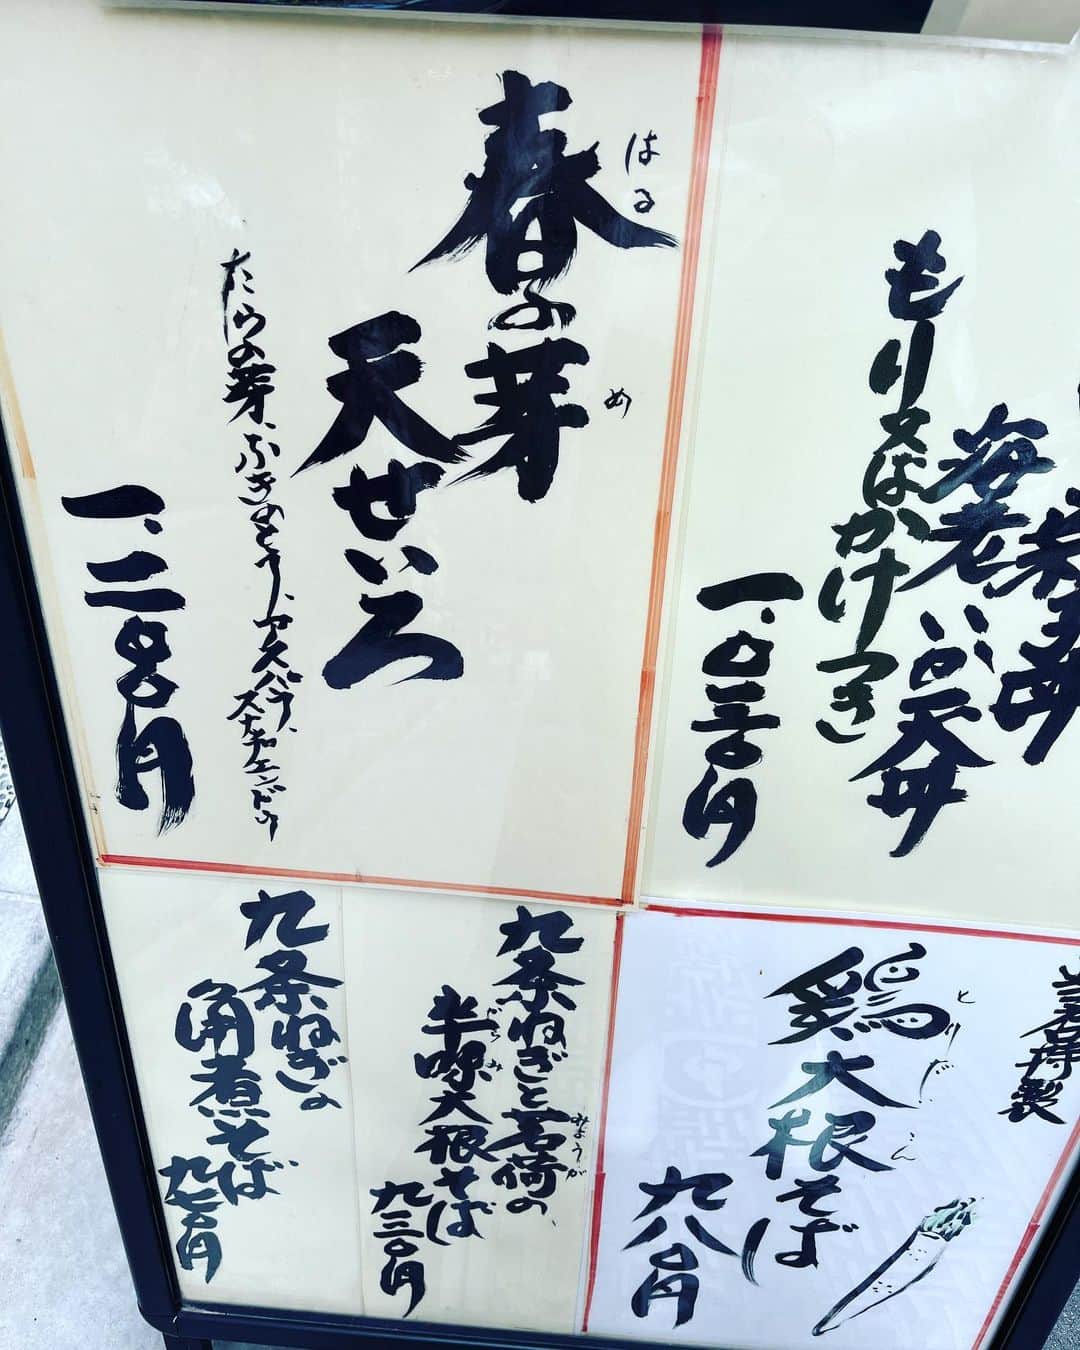 春の芽
はる
め
天せいろ
たらの芽、ふきのとう、アスパラ、
スナップエンドウ
一、二〇〇円
海老いか天丼
もり又はかけつき
一、〇三〇円
特製
鶏大根そば
とりだいこん
九八〇円
九条ねぎと茗荷の
みょうが
辛味大根そば
からみ
九三〇円
九条ねぎの
角煮そば